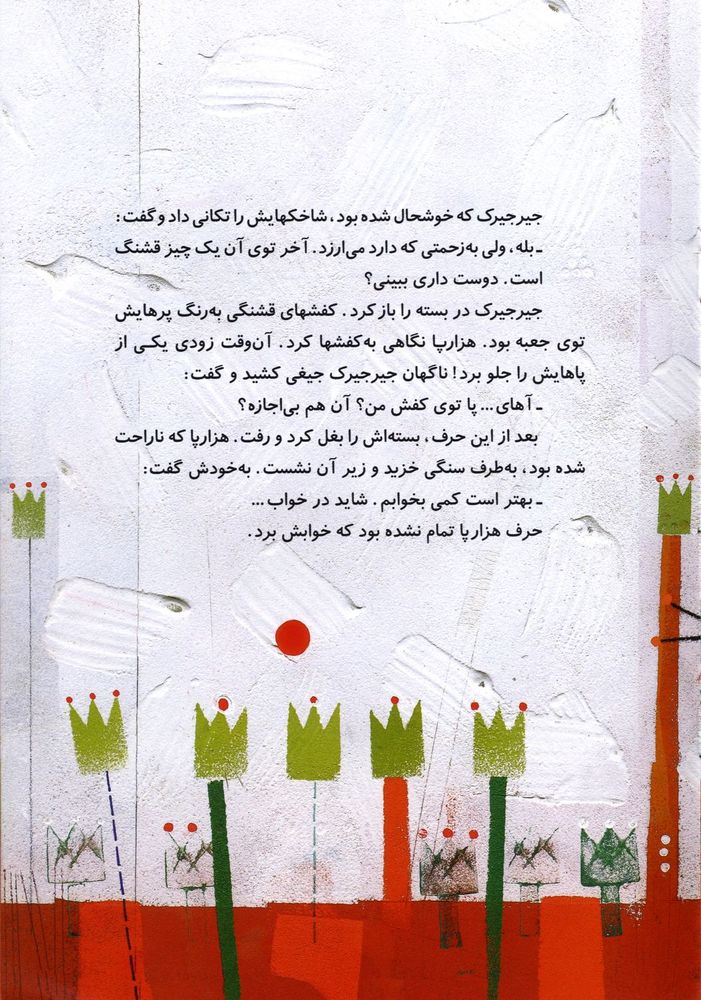 جیرجیرک که خوشحال شده بود، شاخکهایش را تکانی داد و گفت:
ـ بله، ولی به‌زحمتی که دارد می‌ارزد. آخر توی آن یک چیز قشنگ
است. دوست داری ببینی؟
جیرجیرک در بسته را باز کرد. کفشهای قشنگی به‌رنگ پرهایش
توی جعبه بود. هزارپا نگاهی به‌کفشها کرد. آن‌وقت زودی یکی از
پاهایش را جلو برد! ناگهان جیرجیرک جیغی کشید و گفت:
ـ آهای... پا توی کفش من؟ آن هم بی‌اجازه؟
بعد از این حرف، بسته‌اش را بغل کرد و رفت. هزارپا که ناراحت
شده بود، به‌طرف سنگی خزید و زیر آن نشست. به‌خودش گفت:
ـ بهتر است کمی بخوابم. شاید در خواب...
حرف هزارپا تمام نشده بود که خوابش برد.